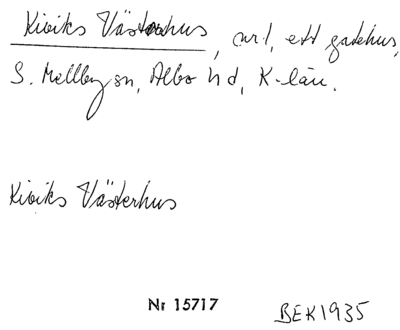 Kiviks Västerhus, art, ett gatehus,
S. Mellby sn, Albo hd, K-län.
Kiviks Västerhus
Nr 15717
BEK1935